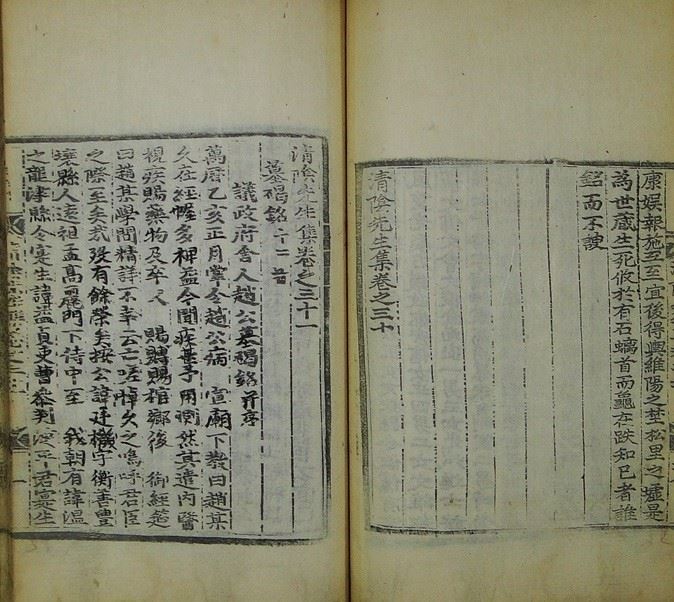 康娛報施互至宜後得輿維陽之埜松里之墟是
為世藏生死攸於有石螭首而龜在趺知已者誰
銘而不諛
清陰先生集卷之三十
清陰先生集卷之三十一
墓碣銘 十二首
議政府舍人趙公墓碣銘 并序
萬曆乙亥正月掌令趙公病 宣廟下教曰趙某
久在經幄多裨益今聞疾革予用惻然其遣內醫
視疾賜藥物及卒又 賜賻賜棺槨後 御經筵
曰趙某學問精詳不幸云亡嗟悼久之嗚呼君臣
之際至矣哉歿有餘榮矣按公諱廷機字衡善豊
壤縣人遠祖孟高麗門下侍中至 我朝有諱溫
之龍津縣令寔生諱益貞吏曹參判漢平君寔生